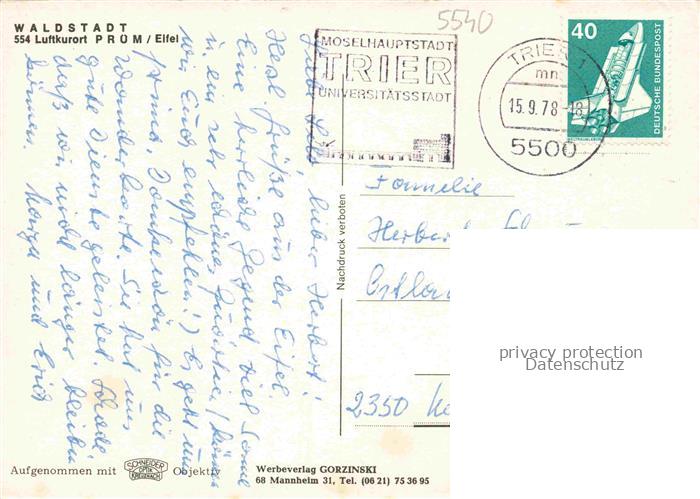 WALDSTADT
554 Luftkurort PRÜM / Eifel
5540
MOSELHAUPTSTADT
TRIER
UNIVERSITÄTSSTADT
TRIER 1
mn
15.9.78-18
5500
40
DEUTSCHE BUNDESPOST
lieber Herbert!
Herzl. Grüße aus der Eifel.
Eine herrliche Gegend, viel Sonne
u. ein sehr schönes Quartier, (können
wir Euch empfehlen!) Es geht uns
prima. Danke schön für die
Wanderkarte. Sie hat uns
gute Dienste geleistet. Schade,
daß wir nicht länger bleiben
können.
und Erich
Nachdruck verboten
Familie
2350
privacy protection
Datenschutz
Aufgenommen mit SCHNEIDER OPTIK KREUZNACH Objektiv
Werbeverlag GORZINSKI
68 Mannheim 31, Tel. (06 21) 75 36 95